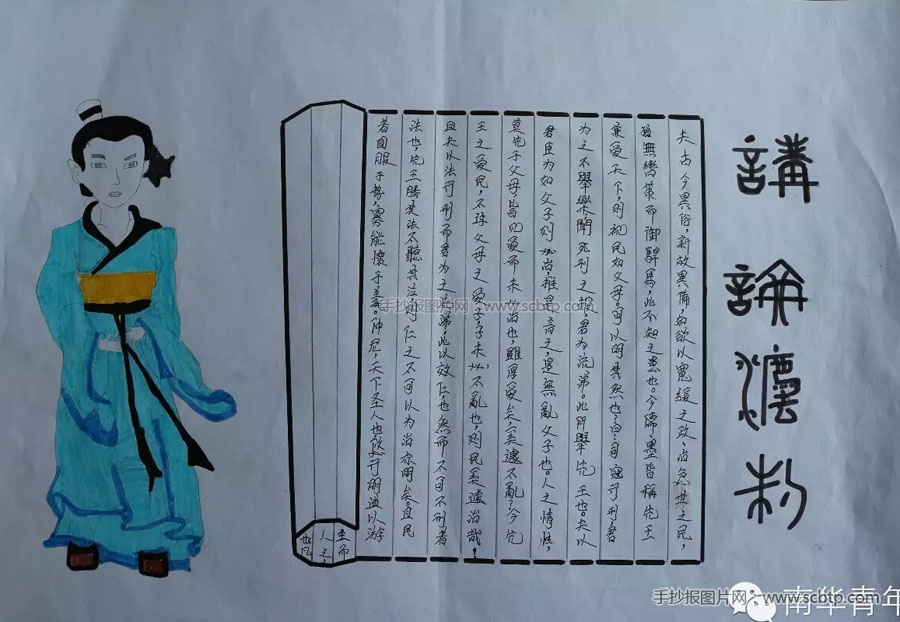 講論灋
夫古今異俗,新故異備,如欲以寬緩之政,治急世之民,
猶無轡策而御駻馬,此不知之患也。今儒、墨皆稱先王
兼愛天下,則視民如父母。何以明其然也,曰:司寇行刑,君
为之不舉樂;聞死刑之報,君為流涕。此所舉先王也。夫以
君臣为如父子則必治,推是言之,是無亂父子也。人之情性,
莫先于父母,皆見愛而未必治也,雖厚愛矣,奚遽不亂?今先
王之愛民,不 父母之愛子,子未必不亂也,則民奚遽治哉!
且夫以法行刑而君为之流涕,此以效仁,也然而不可不刑者
法也,先王勝其法不聽其泣,則仁之不可以为治亦明矣。且民
者固服于勢,寡能懷于義。仲尼,天下圣人也,修行明道以游
至而
人之,
手抄报图片网:www.scbtp.com
手抄报图片网:www.scbtp.com
南华青年